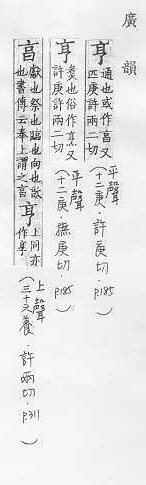 廣韻
亨 通也或作亯又匹庚許兩二切 平聲(十二庚·許庚切·P.185)
亨 煑也俗作烹又許庚許兩二切 平聲(十二庚·撫庚切·P.185)
亯 獻也祭也臨也向也歆也書傳云奉上謂之亯 亨 上同亦作享 上聲(三十六養·許兩切·P.311)